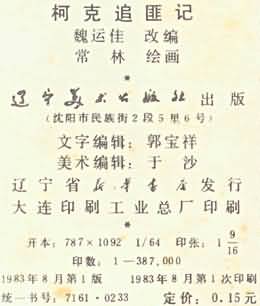 柯克追匪记
魏运佳 改编
常林 绘画
*
辽宁美术出版社 出版
(沈阳市民族街2段5里6号)
文字编辑：郭宝祥
美术编辑：于沙
辽宁省新华书店发行
大连印刷工业总厂印刷
*
开本：787×1092 1/64 印张：1 9/16
印数：1—387,000
1983年8月第1版 1983年8月第1次印刷
统一书号：7161·0233 定价：0.15元